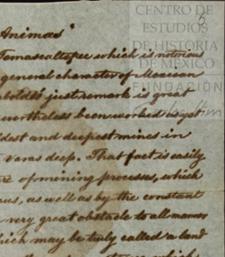 CENTRO DE
ESTUDIOS
DE HISTORIA
DE MÉXICO
FUNDACIÓN
Animas"
Temascaltepec which is notorious
general character of Mexican
boldt's just remark is great
nevertheless been worked as yet
ldest and deepest mines in
varas deep. That fact is easily
re of mining processes, which
us, as well as by the constant
very great obstacle to all manner
hich may be truly called a land